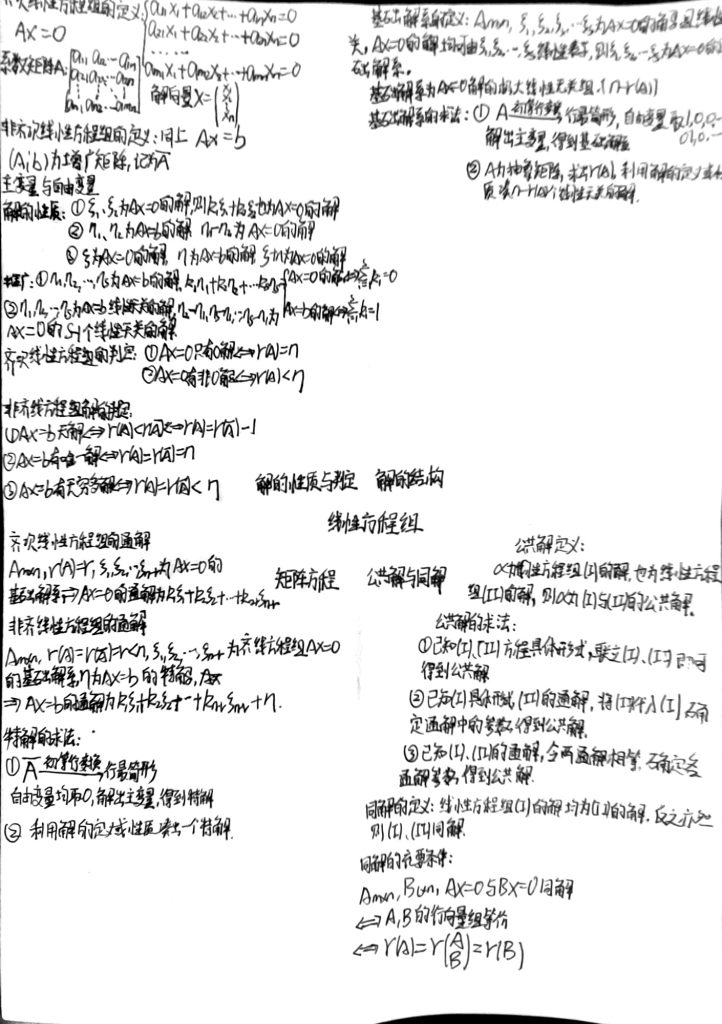 齐次线性方程组的定义: a₁₁x₁+a₁₂x₂+…+a₁ₙxₙ=0
a₂₁x₁+a₂₂x₂+…+a₂ₙxₙ=0
……
aₘ₁x₁+aₘ₂x₂+…+aₘₙxₙ=0
AX=0
系数矩阵A:
解向量X=
非齐次线性方程组的定义:同上 Ax=b
(A,b)为增广矩阵,记为A̅
主变量与自由变量
解的性质: ①ξ₁,ξ₂为AX=0的解,则k₁ξ₁+k₂ξ₂也为AX=0的解
②η₁,η₂为AX=b的解,η₁-η₂为AX=0的解
③ξ为AX=0的解,η为AX=b的解,ξ+η为AX=b的解
推广:①η₁,η₂,…,ηₛ为AX=b的解,k₁η₁+k₂η₂+…+kₛηₛ
AX=0的解⇔Σkᵢ=0
AX=b的解⇔Σkᵢ=1
②η₁,η₂,…,ηₛ为AX=b线性无关的解,
AX=0的s-1个线性无关的解
齐次线性方程组的判定: ①AX=0只有0解⇔r(A)=n
②AX=0有非0解⇔r(A)<n
非齐次线性方程组解的判定:
①AX=b无解⇔r(A)<r(A̅)⇔r(A)=r(A̅)-1
②AX=b有唯一解⇔r(A)=r(A̅)=n
③AX=b有无穷多解⇔r(A)=r(A̅)<n
基础解系的定义: Aₘₓₙ, ξ₁,ξ₂,…ξₛ为AX=0的解且线性无
关,AX=0的解均可由ξ₁,ξ₂…ξₛ线性表示,则ξ₁,ξ₂…ξₛ为AX=0的基
础解系。
基础解系为AX=0解的极大线性无关组.(n-r(A))
基础解系的求法: ①A 初等行变换→行最简形,自由变量取1,0,0…
0,1,0…
解出主变量,得到基础解系
②A为抽象矩阵,求出r(A),利用解的定义或性
质凑n-r(A)个线性无关的解.
解的性质与判定 解的结构
线性方程组
矩阵方程 公共解与同解
齐次线性方程组的通解
Aₘₓₙ, r(A)=r, ξ₁,ξ₂…ξₙ₋ᵣ为AX=0的
基础解系⇒AX=0的通解为k₁ξ₁+k₂ξ₂+…+kₙ₋ᵣξₙ₋ᵣ
非齐次线性方程组的通解
Aₘₓₙ, r(A)=r(A̅)=r<n, ξ₁,ξ₂,…,ξₙ₋ᵣ为齐次方程组AX=0
的基础解系,η为AX=b的特解,
⇒AX=b的通解为k₁ξ₁+k₂ξ₂+…+kₙ₋ᵣξₙ₋ᵣ+η.
特解的求法:
①A̅ 初等行变换→行最简形
自由变量均取0,解出主变量,得到特解
②利用解的定义或性质凑出一个特解.
公共解定义:
α为线性方程组(I)的解,也为线性方程
组(II)的解,则α为(I)与(II)的公共解.
公共解的求法:
①已知(I)、(II)方程具体形式,联立(I)、(II)即可
得到公共解
②已知(I)具体形式,(II)的通解,将(II)代入(I)确
定通解中的参数,得到公共解
③已知(I)、(II)的通解,令两通解相等,确定各
通解参数,得到公共解.
同解的定义:线性方程组(I)的解均为(II)的解,反之亦然
则(I)、(II)同解
同解的充要条件:
Aₘₓₙ, Bₗₓₙ, AX=0与BX=0同解
⇔A,B的行向量组等价
⇔r(A)=r(A B)=r(B)